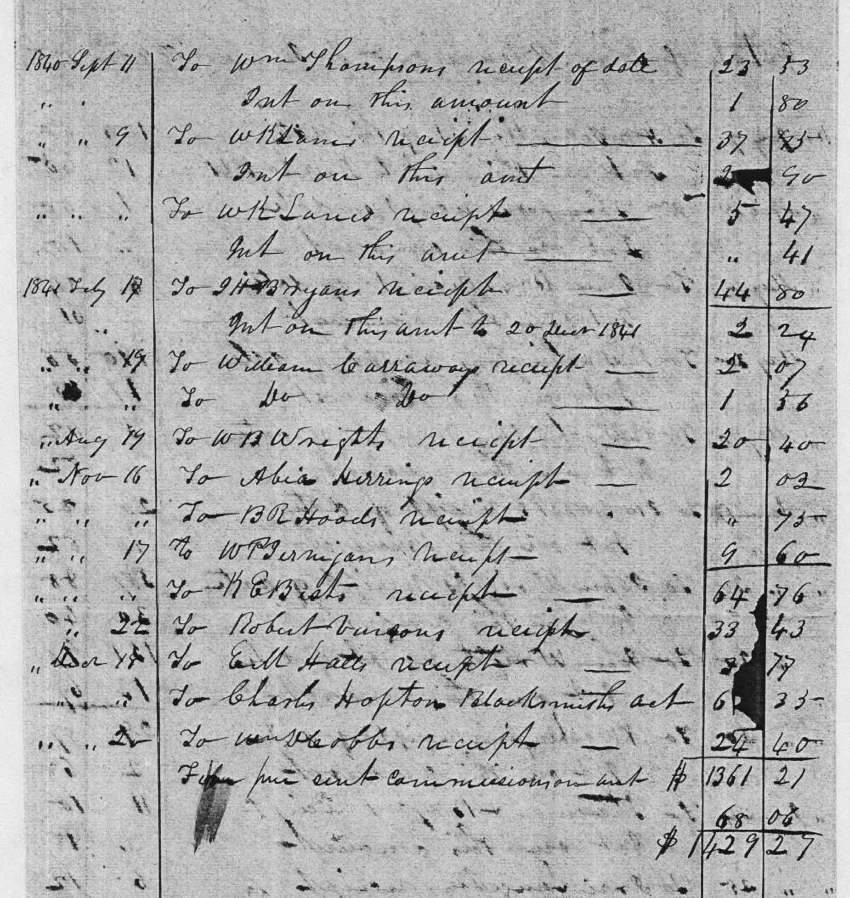 1840 Sept 11 To Wm Thompsons receipt of date 23 53
" " Int on this amount 1 80
" " 9 To WK Lanes receipt 37 95
Int on this amt 90
" " " To WK Lanes receipt 5 47
Int on this amt " 41
1841 Feby 17 To JH Bryans receipt 44 80
Int on this amt to 20 1841 2 24
" " 19 To William Carraways receipt 2 07
" " To Do Do 1 36
" Aug 19 To WB Wrights receipt 20 40
" Nov 16 To Abia Herrings receipt 2 02
" " " To BR Hoods receipt " 75
" " 17 to W Jernigans receipt 9 60
" " " To KE Bests receipt 64 76
" 22 To Robert receipt 33 43
" To Halls receipt 77
" " To Charls Hopton Blacksmiths act 6 35
" " 20 To Wm D Cobbs receipt 24 40
per cent commissions on amt $ 1361 21
68 06
$ 1429 27